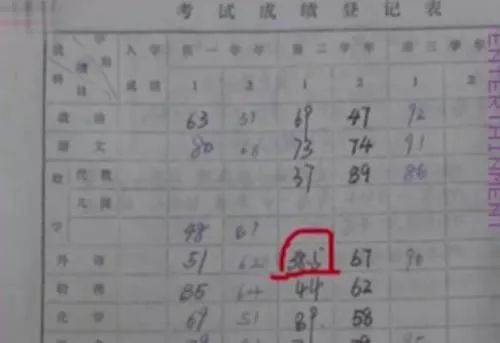 考试成绩登记表
学期 成绩 科目 入学成绩 第一学年 第二学年 第三学年
1 2 1 2 1 2
政治 63 51 69 47 92
语文 80 68 73 74 91
数学 代数 37 89 86
几何
48 61
外语 51 62 38.5 67 90
物理 85 64 44 62
化学 69 51 89 58
ENTERTHINMENT